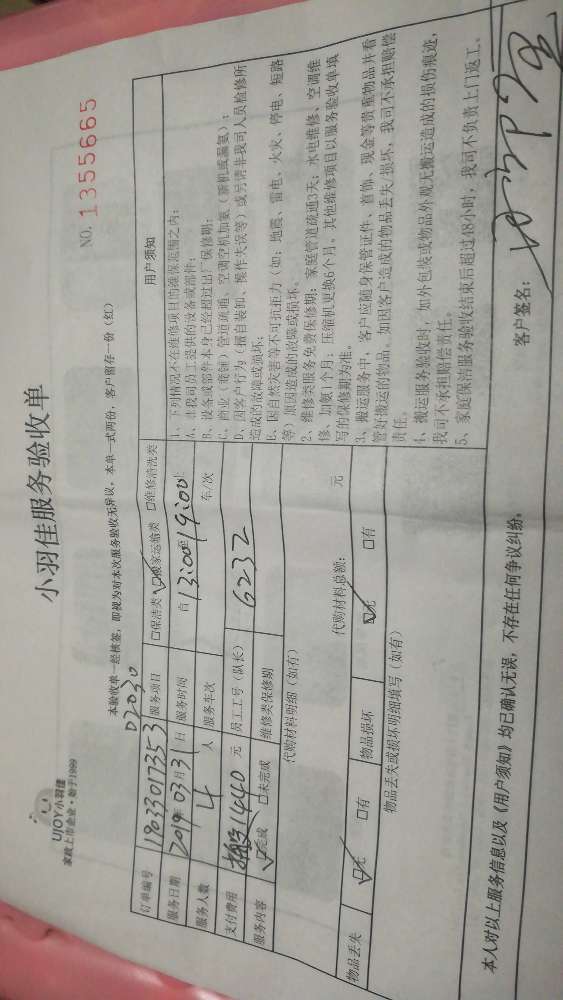 UJOY小羽佳
家政上市企业·始于1999
小羽佳服务验收单
NO. 1355665
本验收单一经核签，即视为对本次服务验收无异议，本单一式两份，客户留存一份（红）
02030
订单编号 19033017353 服务项目 □保洁类 ☑搬家运输类 □维修清洗类
服务日期 2019年03月31日 服务时间 自13:00至19:00止
服务人数 4 人 服务车次 车/次
支付费用 1440 元 员工工号（队长） 6232
服务内容 ☑完成 □未完成 维修类保修期
代购材料明细（如有）
代购材料总额： 元
物品丢失 ☑无 □有 物品损坏 ☑无 □有
物品丢失或损坏明细填写（如有）
用户须知
1、下列情况不在维修项目的维保范围之内：
A、非我司员工提供的设备或部件；
B、设备或部件本身已经超过出厂保修期；
C、商业（商铺）管道疏通、空调空机加氨（新机或漏氨）；
D、因客户行为（擅自装卸、操作失误等）或另请非我司人员检修所
造成的故障或损坏。
E、因自然灾害等不可抗拒力（如：地震、雷电、火灾、停电、短路
等）原因造成的故障或损坏。
2、维修类服务免费保修期：家庭管道疏通3天；水电维修、空调维
修、加氨1个月；压缩机更换6个月，其他维修项目以服务验收单填
写的保修期为准。
3、搬运服务中，客户应随身保管证件、首饰、现金等贵重物品并看
管好搬运的物品。如因客户造成的物品丢失/损坏，我司不承担赔偿
责任。
4、搬运服务验收时，如外包装或物品外观无搬运造成的损伤痕迹，
我司不承担赔偿责任。
5、家庭保洁服务验收结束后超过48小时，我司不负责上门返工。
本人对以上服务信息以及《用户须知》均已确认无误，不存在任何争议纠纷。
客户签名：